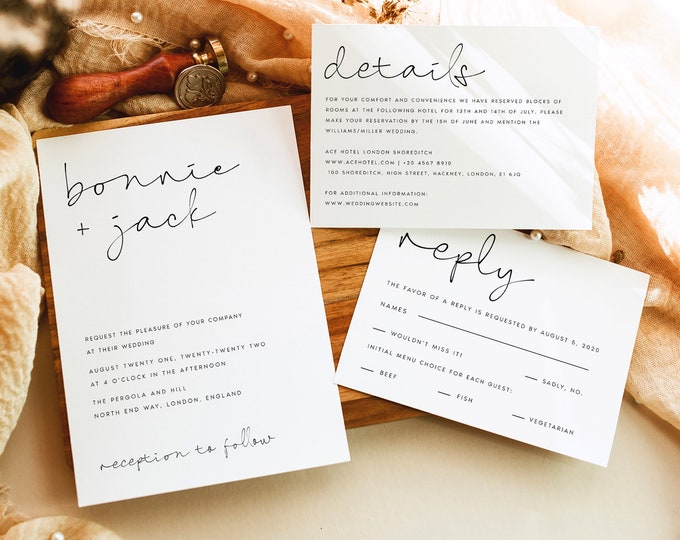 bonnie
+ jack
REQUEST THE PLEASURE OF YOUR COMPANY
AT THEIR WEDDING
AUGUST TWENTY ONE, TWENTY-TWENTY TWO
AT 4 O'CLOCK IN THE AFTERNOON
THE PERGOLA AND HILL
NORTH END WAY, LONDON, ENGLAND
reception to follow
details
FOR YOUR COMFORT AND CONVENIENCE WE HAVE RESERVED BLOCKS OF
ROOMS AT THE FOLLOWING HOTEL FOR 13TH AND 14TH OF JULY. PLEASE
MAKE YOUR RESERVATION BY THE 15TH OF JUNE AND MENTION THE
WILLIAMS/MILLER WEDDING.
ACE HOTEL LONDON SHOREDITCH
WWW.ACEHOTEL.COM | +20 4567 8910
100 SHOREDITCH, HIGH STREET, HACKNEY, LONDON, E1 6JQ
FOR ADDITIONAL INFORMATION:
WWW.WEDDINGWEBSITE.COM
reply
THE FAVOR OF A REPLY IS REQUESTED BY AUGUST 5, 2020
NAMES
WOULDN'T MISS IT! SADLY, NO.
INITIAL MENU CHOICE FOR EACH GUEST:
BEEF FISH VEGETARIAN